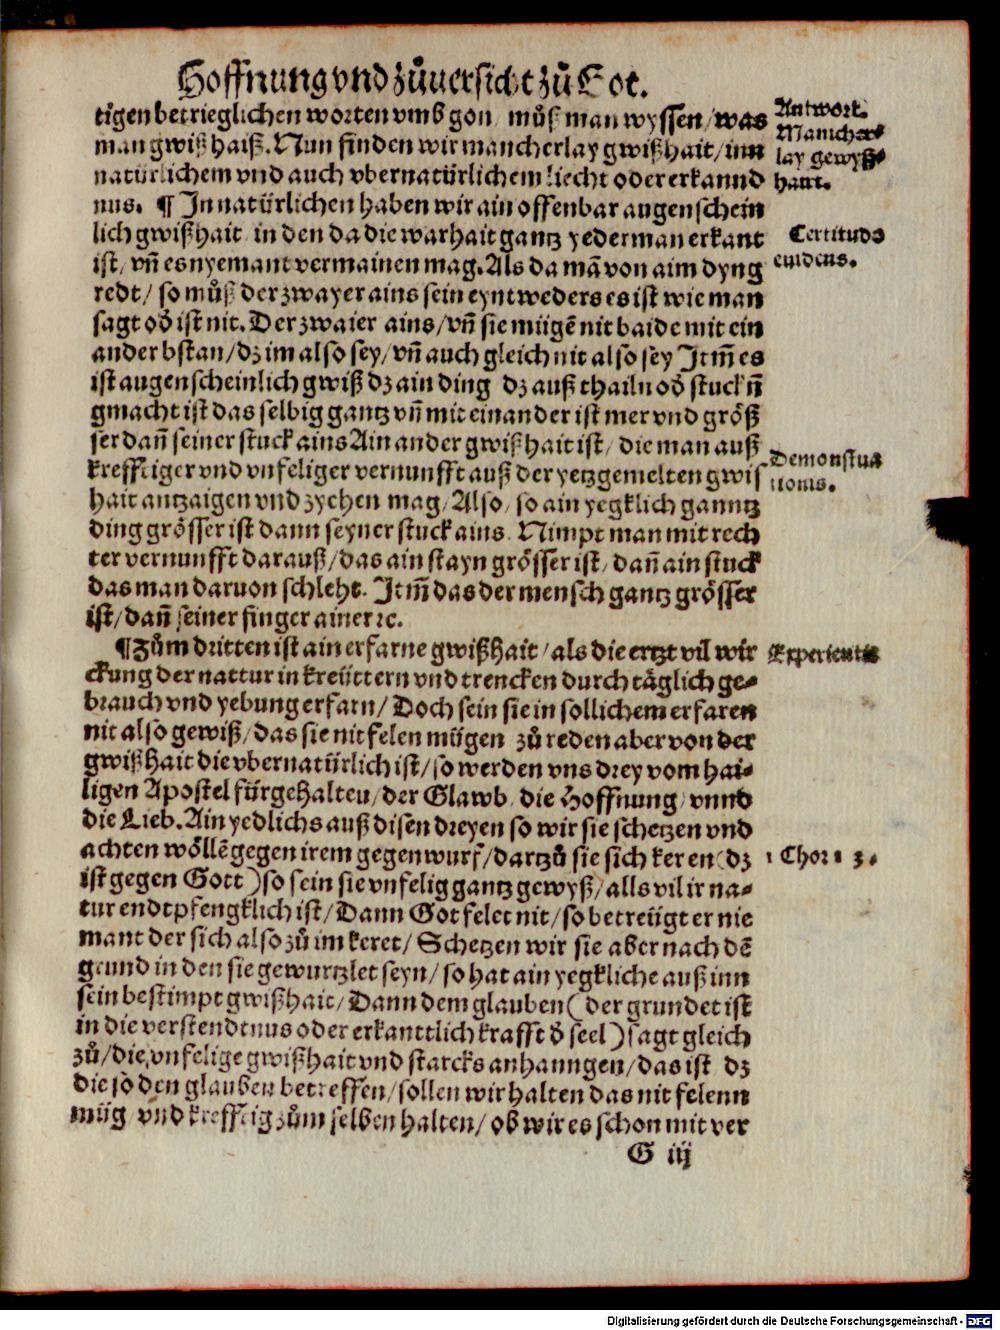 Hoffnung vnd zůuersicht zů Got.
tigen betrieglichen worten vmb gon / můß man wyssen / was
man gwiß haiß. Nun finden wir mancherlay gwißhait / inn
natürlichem vnd auch vbernatürlichem liecht oder erkannd
nus. ¶ In natürlichen haben wir ain offenbar augenschein
lich gwißhait / in den da die warhait gantz yederman erkant
ist / vn̄ es nyemant vermainen mag. Als da mā von aim dyng
redt / so můß der zwayer ains sein eyntweders es ist wie man
sagt oď ist nit. Der zwaier ains / vn̄ sie mügē nit baide mit ein
ander bstan / dz im also sey / vn̄ auch gleich nit also sey Itm̄ es
ist augenscheinlich gwiß dz ain ding dz auß thailn oď stuckn̄
gmacht ist das selbig gantz vn̄ mit einander ist mer vnd größ
ser dan̄ seiner stuck ains Ain ander gwißhait ist / die man auß
krefftiger vnd vnfeliger vernunfft auß der yetzgemelten gwis
hait antzaigen vnd zychen mag / Also / so ain yegklich ganntz
ding grösser ist dann seyner stuck ains. Nimpt man mit rech
ter vernunfft darauß / das ain stayn grösser ist / dan̄ ain stuck
das man daruon schleht. Itm̄ das der mensch gantz grösser
ist / dan̄ seiner finger ainer ꝛc.
¶ Zům dritten ist ain erfarne gwißhait / als die ertzt vil wir
ckung der nattur in kreüttern vnd trencken durch täglich ge-
brauch vnd yebung erfarn / Doch sein sie in sollichem erfaren
nit also gewiß / das sie nit felen mügen zů reden aber von der
gwißhait die vbernatürlich ist / so werden vns drey vom hai-
ligen Apostel fürgehalten / der Glawb / die Hoffnung / vnnd
die Lieb. Ain yedlichs auß disen dreyen so wir sie schetzen vnd
achten wöllē gegen irem gegenwurf / dartzů sie sich keren (dz
ist gegen Gott) so sein sie vnfelig gantz gewyß / alls vil ir na-
tur endtpfengklich ist / Dann Got felet nit / so betreügt er nie
mant der sich also zů im keret / Schetzen wir sie aber nach dē
grund in den sie gewurtzlet seyn / so hat ain yegkliche auß inn
sein bestimpt gwißhait / Dann dem glauben (der grundet ist
in die verstendtnus oder erkanttlich krafft ď seel) sagt gleich
zů / die vnfelige gwißhait vnd starcks anhanngen / das ist dz
die so den glauben betreffen / sollen wir halten das nit felenn
müg vnd krefftig zům selben halten / ob wir es schon mit ver
G iij
Antwort.
Manicher-
lay gewyß-
hait.
Certitudo
euidens.
Demonstra
tionis.
Experientie
1 Chor. 13.
Digitalisierung gefördert durch die Deutsche Forschungsgemeinschaft - DFG